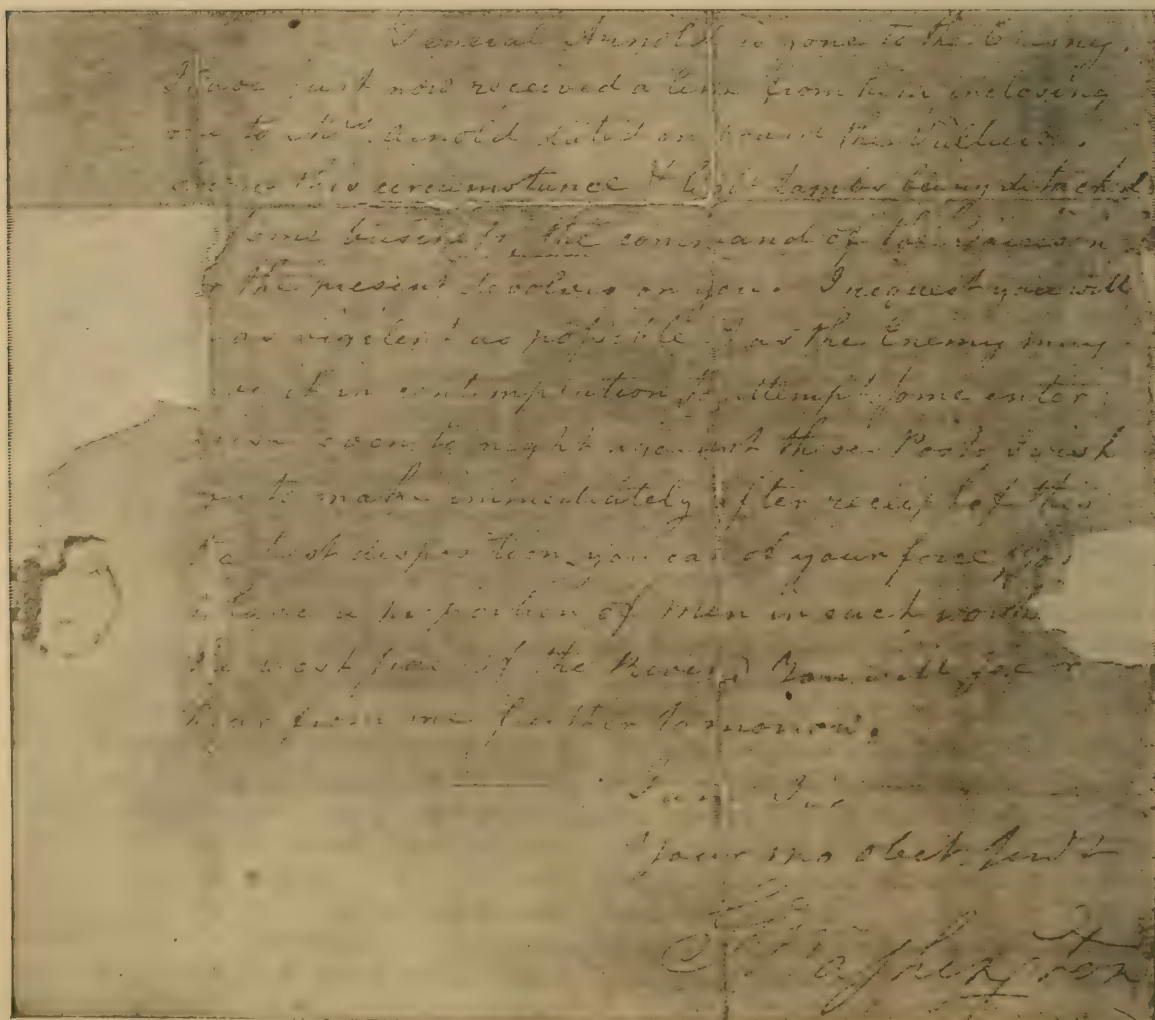 General Arnold is gone to the Enemy.
I have just now received a line from him, inclosing
one to Mrs Arnold dated on board the Vulture.
From this circumstance & Colo Lambs being detached
some business, the command of the Garrison
for the present devolves on you. I request you will
as vigilent as possible & as the Enemy may
have it in contemplation to attempt some enter
even to night against these Posts I wish
you to make immediately after receipt of this
the best disposition you can of your force, so
have a proportion of men in each work
the west side of the River. You will see or
hear from me further tomorrow.
I am Sir
Your mo obedt Servt
G Washington